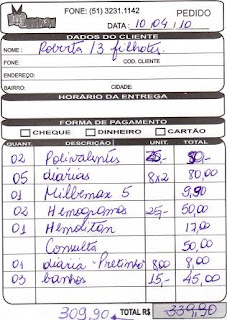 FONE: (51) 3231.1142
PEDIDO
DATA: 10 04 10
DADOS DO CLIENTE
NOME: Roberta / 3 filhotes
FONE: COD. CLIENTE
ENDEREÇO:
BAIRRO: CIDADE:
HORÁRIO DA ENTREGA
FORMA DE PAGAMENTO
CHEQUE DINHEIRO CARTÃO
QUANT. DESCRIÇÃO UNIT. TOTAL
02 Polivalentes 25,- 50,-
05 diárias 8x2 80,00
01 Milbemax 5 9,90
02 Hemogramas 25,- 50,00
01 Hemolitan 17,00
Consulta 50,00
01 diária "Pretinho" 8,00 8,00
03 banhos 15,- 45,00
309,90 TOTAL R$ 339,90